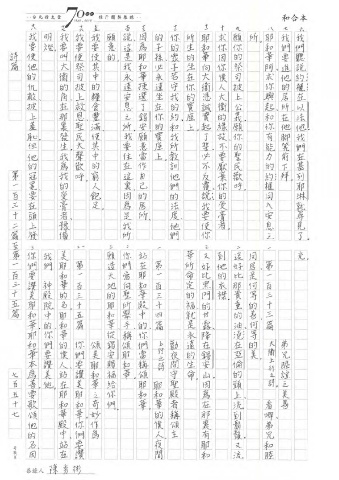 和合本
70
我們聽說約櫃在以法他我們在基列耶琳就尋見了。
我們要進他的居所在他腳凳前下拜
耶和華阿求你興起和你有能力的約櫃同入安息之
所
願你的祭司披上公義願你的聖民歡呼
求你因你僕人大衛的緣故不要厭棄你的受膏者
耶和華向大衛憑誠實起了誓必不反覆說我要使你
所生的坐在你的寶座上
你的眾子若守我的約和我所教訓他們的法度他們
的子孫必永遠坐在你的寶座上
因為耶和華揀選了錫安願意當作自己的居所
說這是我永遠安息之所我要住在這裏因為是我所
願意的
我要使其中的糧食豐滿使其中的窮人飽足
我要使祭司披上救恩聖民大聲歡呼
我要叫大衛的角在那裏發生我為我的受膏者預備
明燈
我要使他的仇敵披上羞恥但他的冠冕要在頭上發
光
第一百三十三篇 弟兄和睦之美善
大衛上行之詩 看哪弟兄和睦
同居是何等的善何等的美
這好比那貴重的油澆在亞倫的頭上流到鬍鬚又流
到他的衣襟
又好比黑門的甘露降在錫安山因為在那裏有耶和
華所命定的福就是永遠的生命
第一百三十四篇 勸夜間守聖殿者稱頌主
上行之詩 耶和華的僕人夜間
站在耶和華殿中的你們當稱頌耶和華
你們當向聖所舉手稱頌耶和華
願造天地的耶和華從錫安賜福給你們
第一百三十五篇 頌美耶和華之奇妙作為
你們要讚美耶和華
美耶和華的名耶和華的僕人站在耶和華殿中站在
我們 神殿院中的你們要讚美他
你們要讚美耶和華耶和華本為善要歌頌他的名因
詩篇 第一百三十二篇至第一百三十五篇 七百五十七